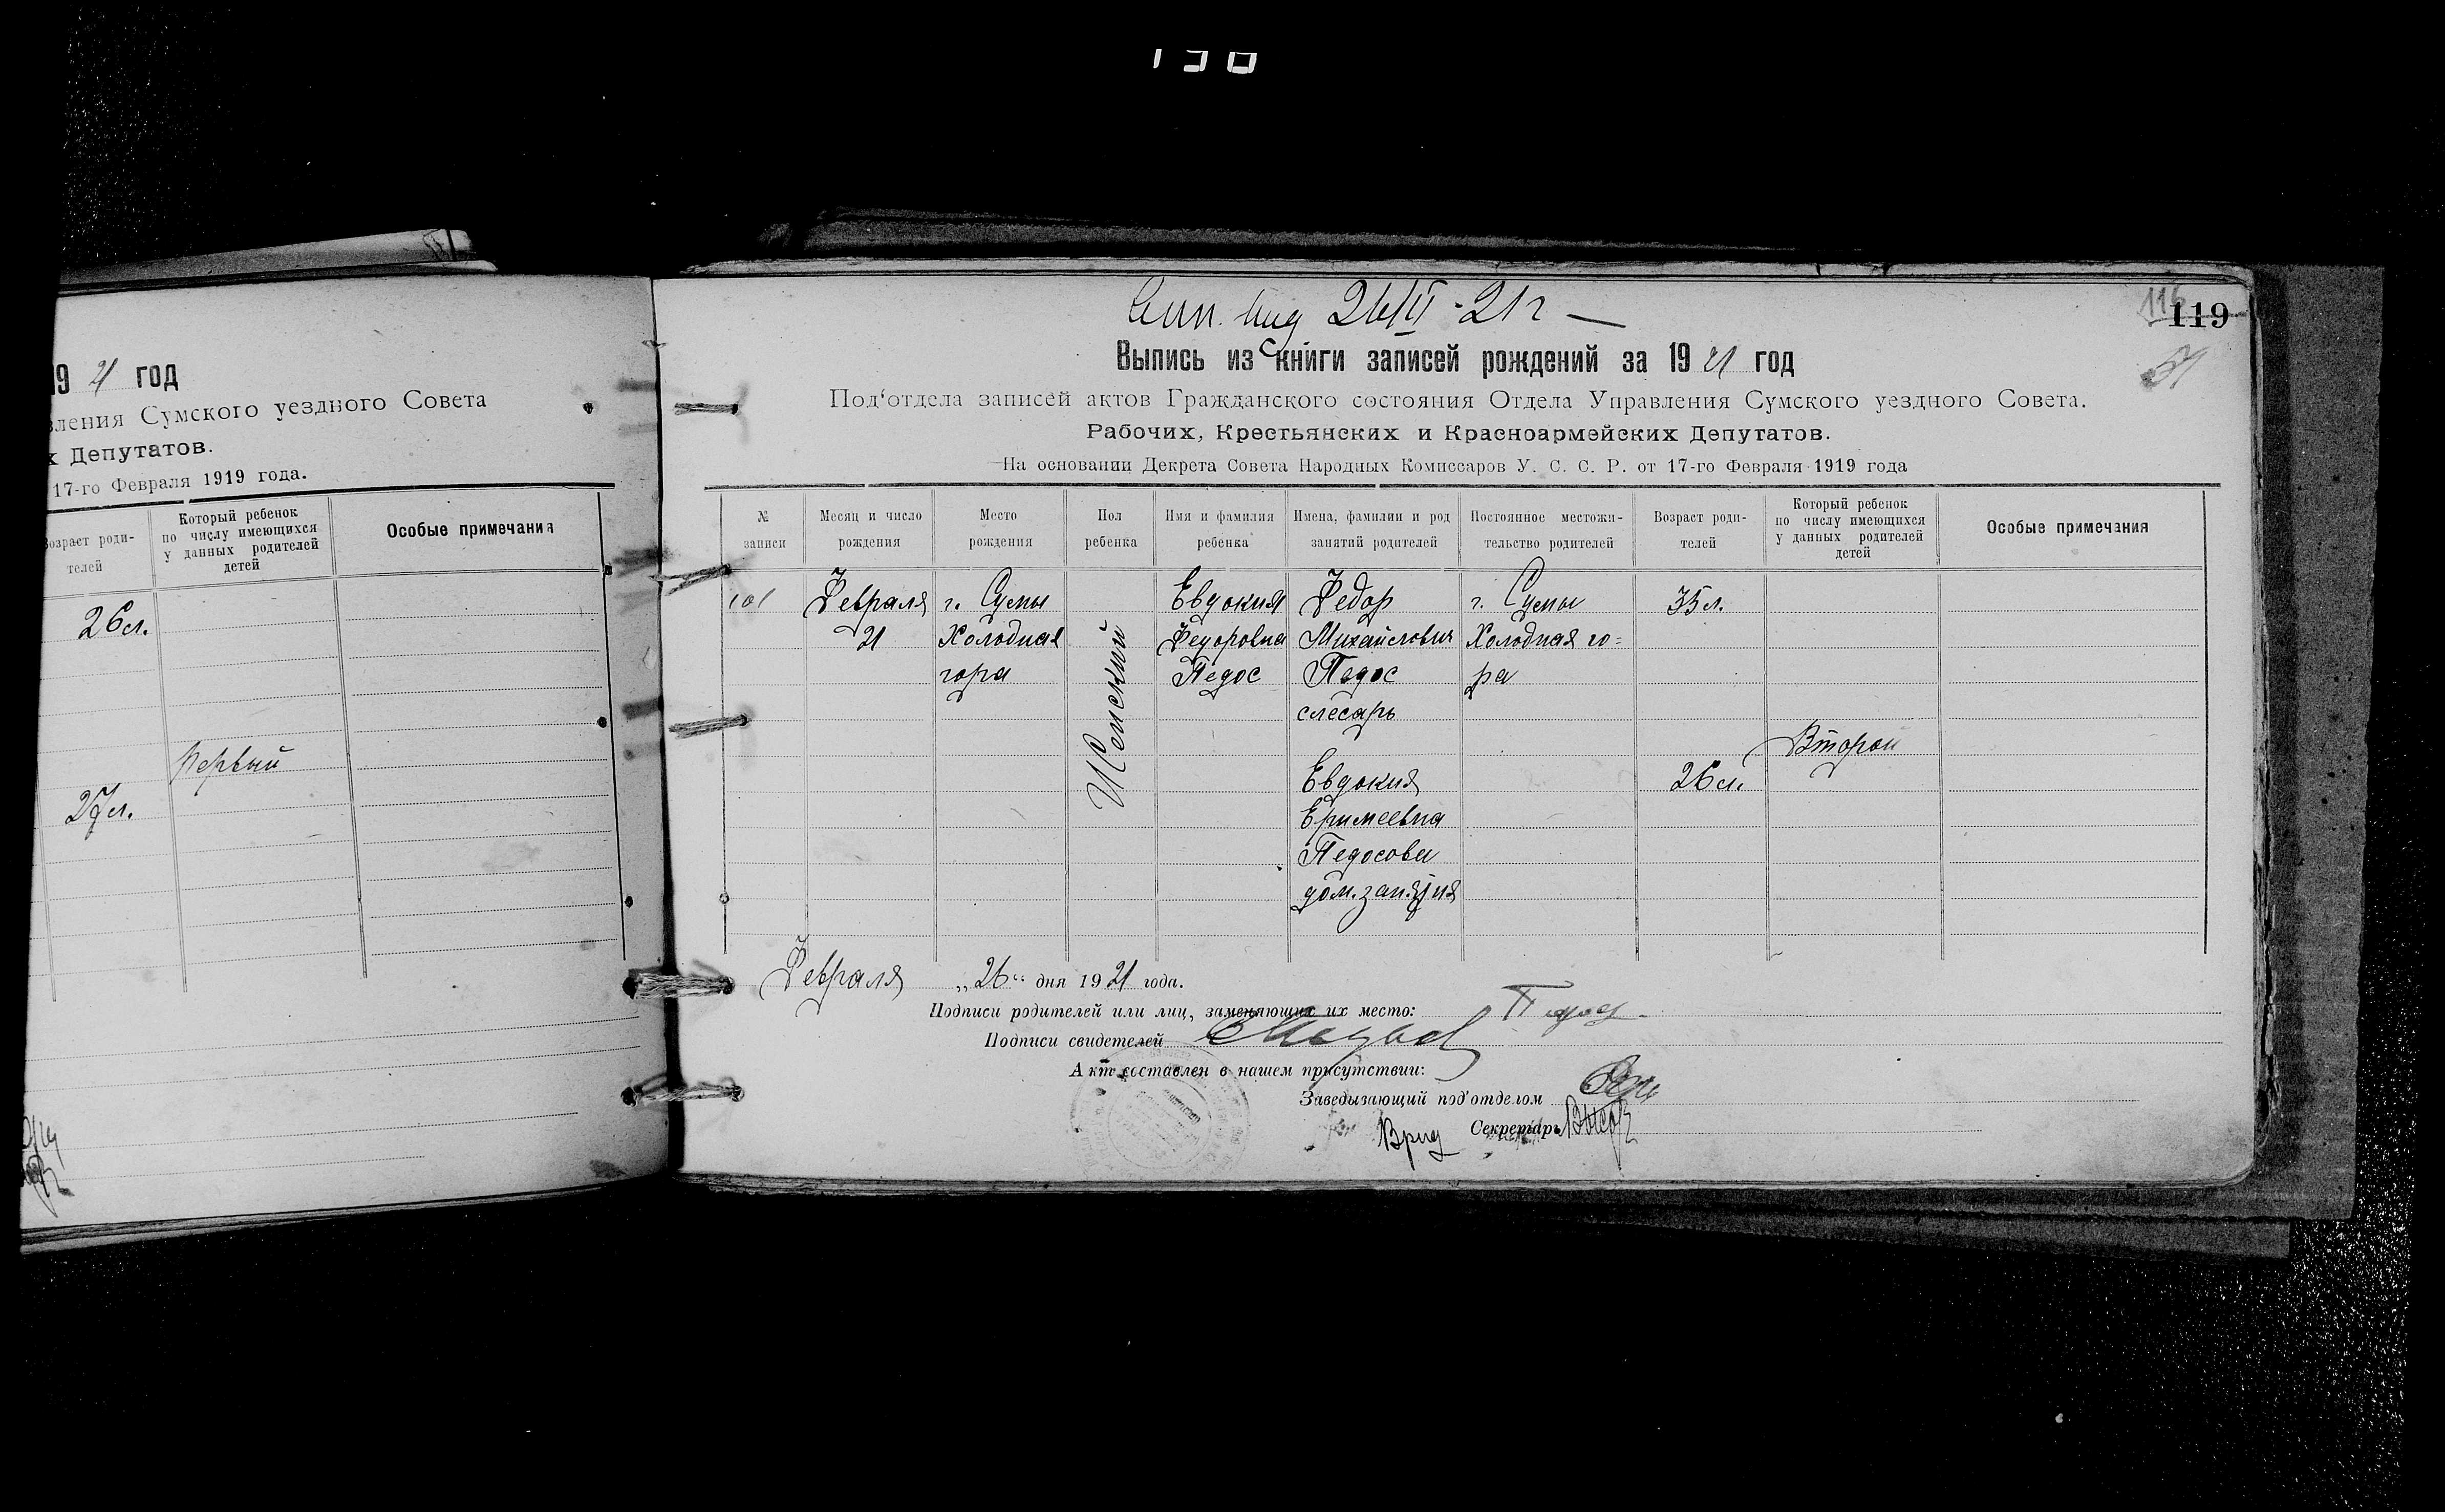 19 21 год
вления Сумского уездного Совета
х Депутатов.
17-го Февраля 1919 года.
Возраст роди-
телей
Который ребенок
по числу имеющихся
у данных родителей
детей
Особые примечания
26 л.
Первый
27 л.
26/II - 21 г
116
119
Выпись из книги записей рождений за 19 21 год
Под'отдела записей актов Гражданского состояния Отдела Управления Сумского уездного Совета.
Рабочих, Крестьянских и Красноармейских Депутатов.
На основании Декрета Совета Народных Комиссаров У. С. С. Р. от 17-го Февраля 1919 года
№
записи
Месяц и число
рождения
Место
рождения
Пол
ребенка
Имя и фамилия
ребенка
Имена, фамилии и род
занятий родителей
Постоянное местожи-
тельство родителей
Возраст роди-
телей
Который ребенок
по числу имеющихся
у данных родителей
детей
Особые примечания
101
Февраля
21
г. Сумы
Холодная
гора
Женский
Евдокия
Федоровна
Педос
Федор
Михайлович
Педос
слесарь
Евдокия
Еримеевна
Педосова
дом. занятия
г. Сумы
Холодная го=
ра
35 л.
26 л.
Второй
Февраля „26" дня 1921 года.
Подписи родителей или лиц, заменяющих их место: Педос
Подписи свидетелей
Акт составлен в нашем присутствии:
Заведывающий под'отделом
Врид Секретарь